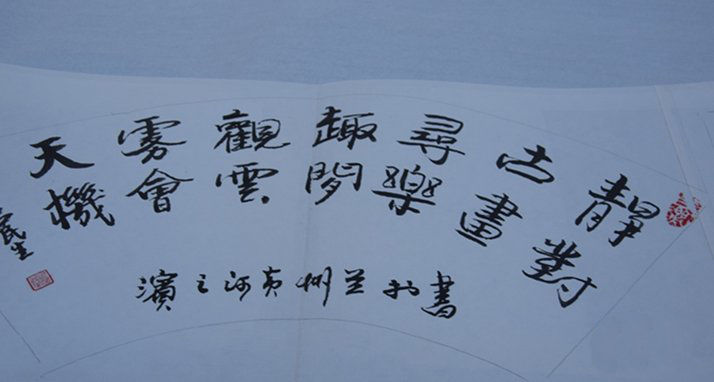 靜對
古畫
尋樂
趣閒
觀雲
霧會
天機
書於兰州黄河之濱
民生